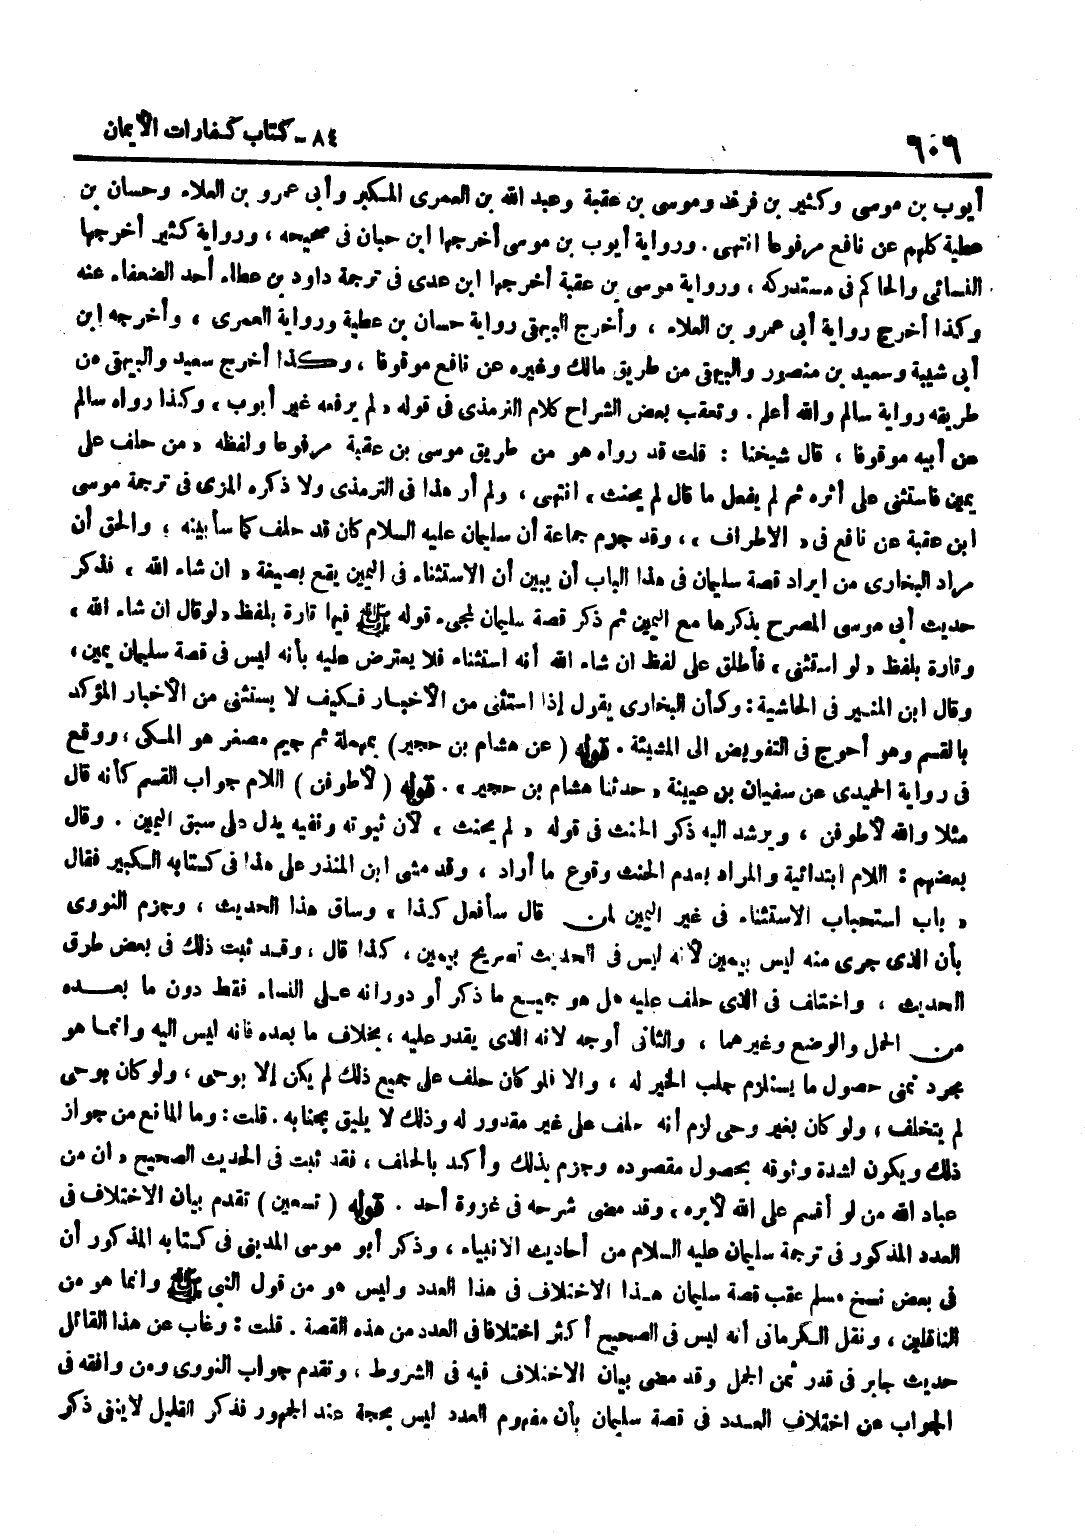 ٦٠٦
٨٤ - كتاب كفارات الأيمان
أيوب بن موسى وكثير بن فرقد وموسى بن عقبة وعبد الله بن العمرى المكبر وأبى عمرو بن العلاء وحسان بن
عطية كلهم عن نافع مرفوعا انتهى . ورواية أيوب بن موسى أخرجها ابن حبان فى صحيحه ، ورواية كثير أخرجها
النسائى والحاكم فى مستدركه ، ورواية موسى بن عقبة أخرجها ابن عدى فى ترجمة داود بن عطاء أحد الضعفاء عنه
وكذا أخرج رواية أبى عمرو بن العلاء ، وأخرج البيهقى رواية حسان بن عطية ورواية العمرى ، وأخرجه ابن
أبى شيبة وسعيد بن منصور والبيهقى من طريق مالك وغيره عن نافع موقوفا ، وكذا أخرج سعيد والبيهقى من
طريقه رواية سالم والله أعلم . وتعقب بعض الشراح كلام الترمذى فى قوله « لم يرفعه غير أيوب ، وكذا رواه سالم
عن أبيه موقوفا ، قال شيخنا : قلت قد رواه هو من طريق موسى بن عقبة مرفوعا ولفظه « من حلف على
يمين فاستثنى على أثره ثم لم يفعل ما قال لم يحنث ، انتهى ، ولم أر هذا فى الترمذى ولا ذكره المزى فى ترجمة موسى
ابن عقبة عن نافع فى « الاطراف » ، وقد جزم جماعة أن سليمان عليه السلام كان قد حلف كما سأبينه ، والحق أن
مراد البخارى من ايراد قصة سليمان فى هذا الباب أن يبين أن الاستثناء فى اليمين يقع بصيغة « ان شاء الله ، فذكر
حديث أبى موسى المصرح بذكرها مع اليمين ثم ذكر قصة سليمان لمجىء قوله ﷺ فيها تارة بلفظ « لو قال ان شاء الله »
وتارة بلفظ « لو استثنى ، فأطلق على لفظ ان شاء الله أنه استثناء فلا يعترض عليه بأنه ليس فى قصة سليمان يمين ،
وقال ابن المنير فى الحاشية : وكأن البخارى يقول إذا استثنى من الأخبار فكيف لا يستثنى من الأخبار المؤكد
بالقسم وهو أحوج فى التفويض الى المشيئة . قوله ( عن هشام بن حجير ) بمهملة ثم جيم مصغر هو المكى ، ووقع
فى رواية الحميدى عن سفيان بن عيينة « حدثنا هشام بن حجير » . قوله ( لأطوفن ) اللام جواب القسم كأنه قال
مثلا والله لأطوفن ، ويرشد اليه ذكر الحنث فى قوله « لم يحنث ، لأن ثبوته ونفيه يدل على سبق اليمين . وقال
بعضهم : اللام ابتدائية والمراد بعدم الحنث وقوع ما أراد ، وقد مشى ابن المنذر على هذا فى كتابه الكبير فقال
« باب استحباب الاستثناء فى غير اليمين لمن قال سأفعل كذا » وساق هذا الحديث ، وجزم النووى
بأن الذى جرى منه ليس بيمين لأنه ليس فى الحديث تصريح بيمين ، كذا قال ، وقد ثبت ذلك فى بعض طرق
الحديث ، واختلف فى الذى حلف عليه هل هو جميع ما ذكر أو دورانه على النساء فقط دون ما بعده
من الحمل والوضع وغيرهما ، والثانى أوجه لانه الذى يقدر عليه ، بخلاف ما بعده فانه ليس اليه وانما هو
مجرد تمنى حصول ما يستلزم جلب الخير له ، والا فلو كان حلف على جميع ذلك لم يكن إلا بوحى ، ولو كان بوحى
لم يتخلف ، ولو كان بغير وحى لزم أنه حلف على غير مقدور له وذلك لا يليق بجنابه . قلت : وما المانع من جواز
ذلك ويكون لشدة وثوقه بحصول مقصوده وجزم بذلك وأكد بالحلف ، فقد ثبت فى الحديث الصحيح « ان من
عباد الله من لو أقسم على الله لأبره ، وقد مضى شرحه فى غزوة أحد . قوله ( تسعين ) تقدم بيان الاختلاف فى
العدد المذكور فى ترجمة سليمان عليه السلام من أحاديث الانبياء ، وذكر أبو موسى المدينى فى كتابه المذكور أن
فى بعض نسخ مسلم عقب قصة سليمان هذا الاختلاف فى هذا العدد وليس هو من قول النبى ﷺ وانما هو من
الناقلين ، ونقل الكرمانى أنه ليس فى الصحيح أكثر اختلافا فى العدد من هذه القصة . قلت : وغاب عن هذا القائل
حديث جابر فى قدر ثمن الجمل وقد مضى بيان الاختلاف فيه فى الشروط ، وتقدم جواب النووى ومن وافقه فى
الجواب عن اختلاف العدد فى قصة سليمان بأن مفهوم العدد ليس بحجة عند الجمهور فذكر القليل لا ينفى ذكر